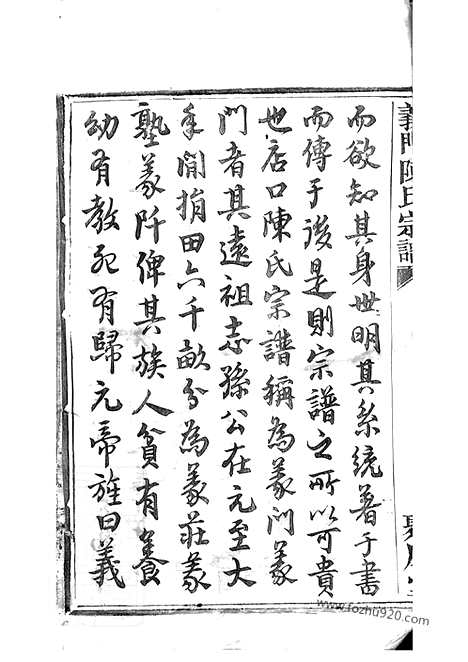 義門陳氏宗譜
而欲知其身世明其系統著于書
而傳于後是則宗譜之所以可貴
也店口陳氏宗譜稱為義門義
門者其遠祖志孫公在元至大
年間捐田六千畝分為義莊義
塾義阡俾其族人貧有養
幼有教死有歸元帝旌曰義
www.fozhu920.com